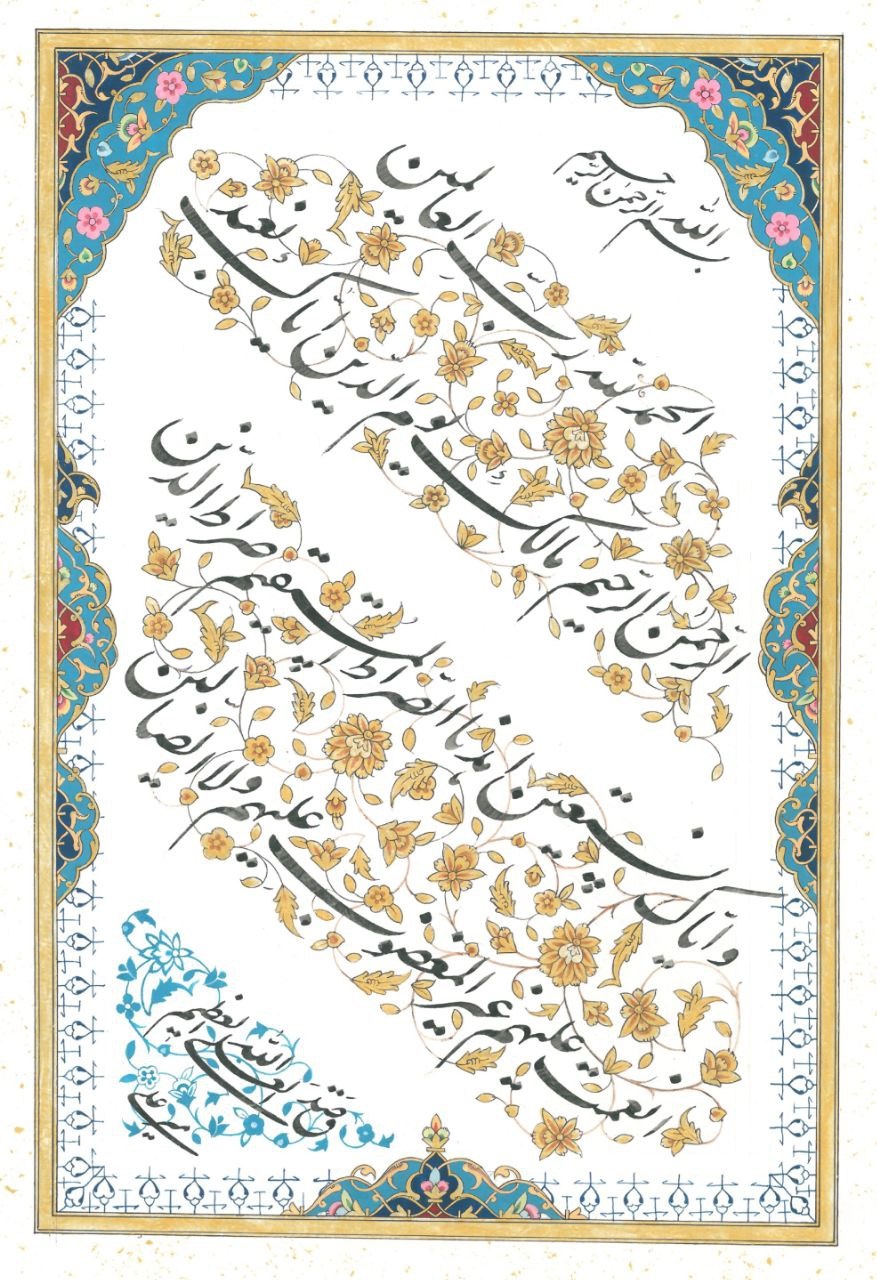 بسم الله الرحمن الرحیم
الحمد لله رب العالمین
الرحمن الرحیم مالک یوم الدین ایاک نعبد
و ایاک نستعین اهدنا الصراط المستقیم صراط الذین
انعمت علیهم غیر المغضوب علیهم ولا الضالین
وصدق الله العلی العظیم